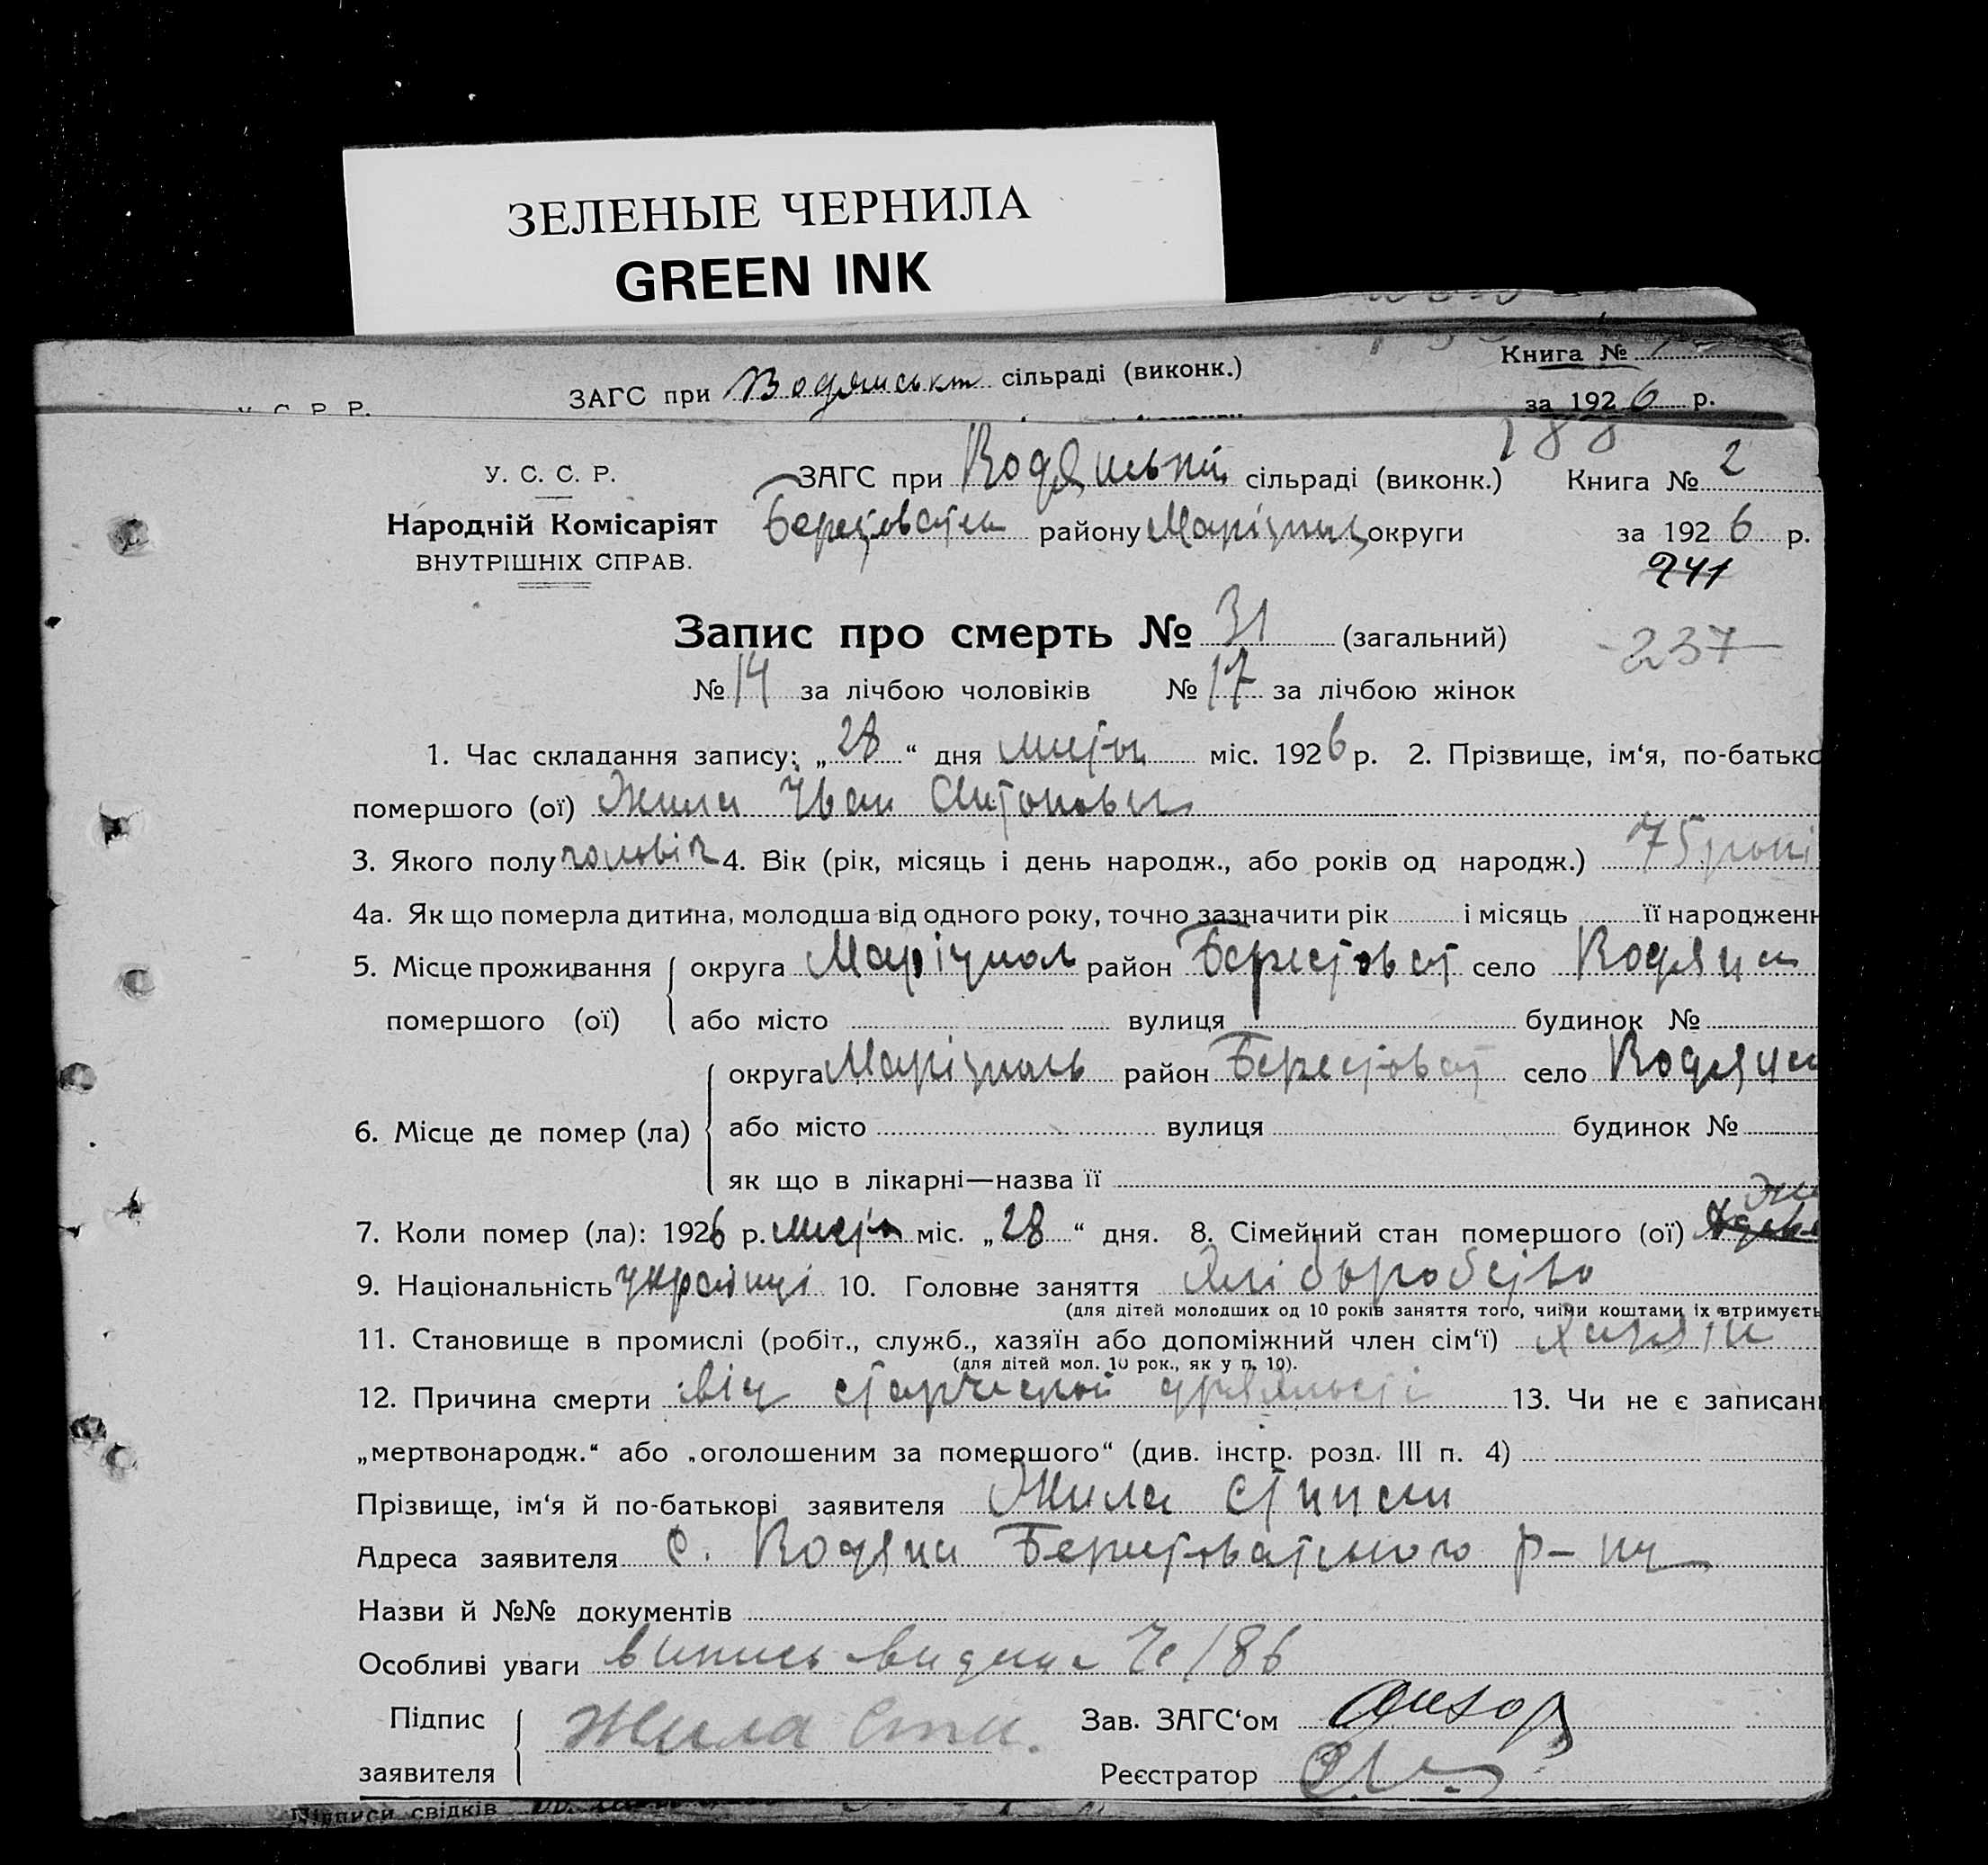 ЗЕЛЕНЫЕ ЧЕРНИЛА
GREEN INK
Книга №
ЗАГС при Водянськім сільраді (виконк.)
У. С. С. Р.
за 1926 р.
188
У. С. С. Р. ЗАГС при Водянській сільраді (виконк.) Книга № 2
Народній Комісаріят району Маріупіль округи за 1926 р.
ВНУТРІШНІХ СПРАВ.
241
Запис про смерть № 31 (загальний)
237
№ 14 за лічбою чоловіків № 17 за лічбою жінок
1. Час складання запису: „28“ дня міс. 1926 р. 2. Прізвище, ім‘я, по-батько
помершого (ої) Жила Іван Антонович
3. Якого полу чоловік 4. Вік (рік, місяць і день народж., або років од народж.) 75 рокі
4а. Як що померла дитина, молодша від одного року, точно зазначити рік і місяць її народженн
5. Місце проживання округа Маріупол район Берестоват село Водяна
помершого (ої) або місто вулиця будинок №
округа Маріуполь район Берестоват село Водяна
6. Місце де помер (ла) або місто вулиця будинок №
як що в лікарні—назва її
7. Коли помер (ла): 1926 р. міс. „28“ дня. 8. Сімейний стан помершого (ої)
9. Національність українці 10. Головне заняття хліборобство
(для дітей молодших од 10 років заняття того, чиїми коштами їх втримуєть
11. Становище в промислі (робіт., служб., хазяїн або допоміжний член сім‘ї) хазяїн
(для дітей мол. 10 рок., як у п. 10).
12. Причина смерти від старческой дряхлості 13. Чи не є записан
„мертвонародж.“ або „оголошеним за помершого“ (див. інстр. розд. III п. 4)
Прізвище, ім‘я й по-батькові заявителя Жила
Адреса заявителя с. Водяна Берестоватського р-ну
Назви й №№ документів
Особливі уваги випись видана № 186
Підпис Жила Зав. ЗАГС‘ом
заявителя Реєстратор
Підписи свідків